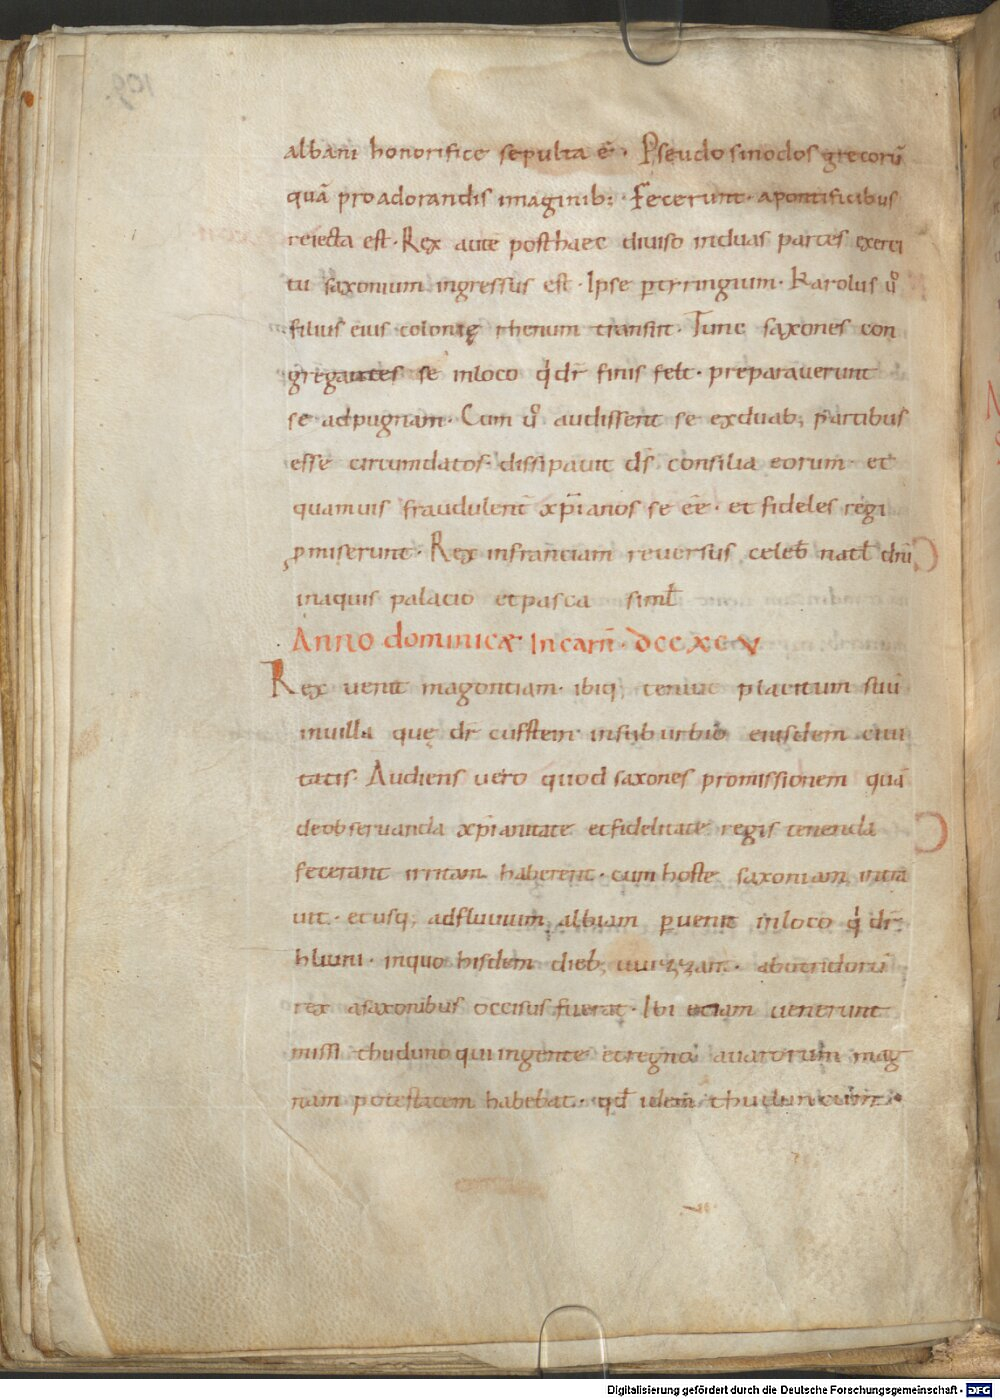 albani honorifice sepulta ē. Pseudo sinodos grecorū
quā pro adorandis imaginib; fecerunt. a pontificibus
reiecta est. Rex autē posthaec diuiso induas partes exerci
tu saxonium ingressus est. Ipse ꝑ trringium. Karolus ů
filius eius colonię rhenum transiit. Tunc saxones con
gregantes se inloco qd dr̄ sinis felt. preparauerunt
se adpugnam. Cum ů audissent se exduab; partibus
esse circumdatos. dissipauit ds̄ consilia eorum. et
quamuis fraudulent̄ xp̄ianos se ēē. et fideles regi
ꝓmiserunt. Rex infranciam reuersus celeb̄ natł dn̄i
inaquis palacio et pasca simł
Anno dominicæ Incarn̄. DCCXCV
Rex uenit magontiam. ibiq; tenuit placitum suū
inuilla quę dr̄ cufstein insuburbio eiusdem ciui
tatis. Audiens uero quod saxones promissionem quā
deobseruanda xp̄ianitate et fidelitate regis tenenda
fecerant irritam haberent. cum hoste saxoniam intra
uit. et usq; adfluuium albiam ꝑuenit inloco qd dr̄
hliuni. inquo hisdem dieb; uuizzan. abotridorū
rex asaxonibus occisus fuerat. Ibi etiam uenerunt
missi thuduno qui ingente et regno auarorum mag
nam potestatem habebat. qd idem thudun cum
109